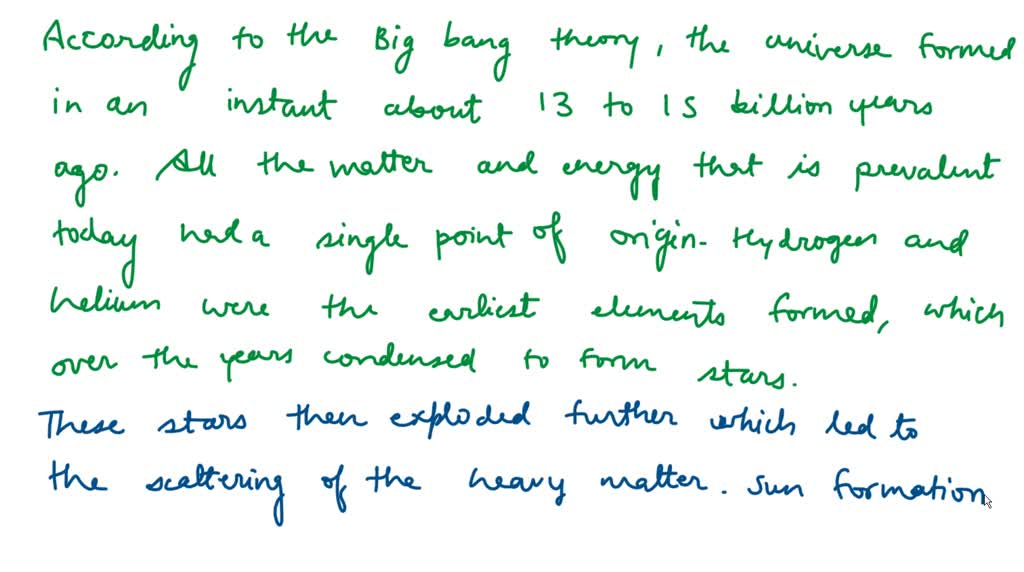 According to the Big bang theory, the universe formed
in an instant about 13 to 15 billion years
ago. All the matter and energy that is prevalent
today had a single point of origin. Hydrogen and
helium were the earliest elements formed, which
over the years condensed to form stars.
These stars then exploded further which led to
the scattering of the heavy matter. Sun formation